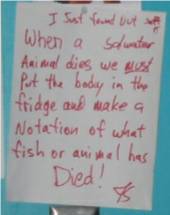 I Just found out
When a Salwater
Animal dies we must
Put the body in the
fridge and make a
Notation of what
fish or animal has
Died!